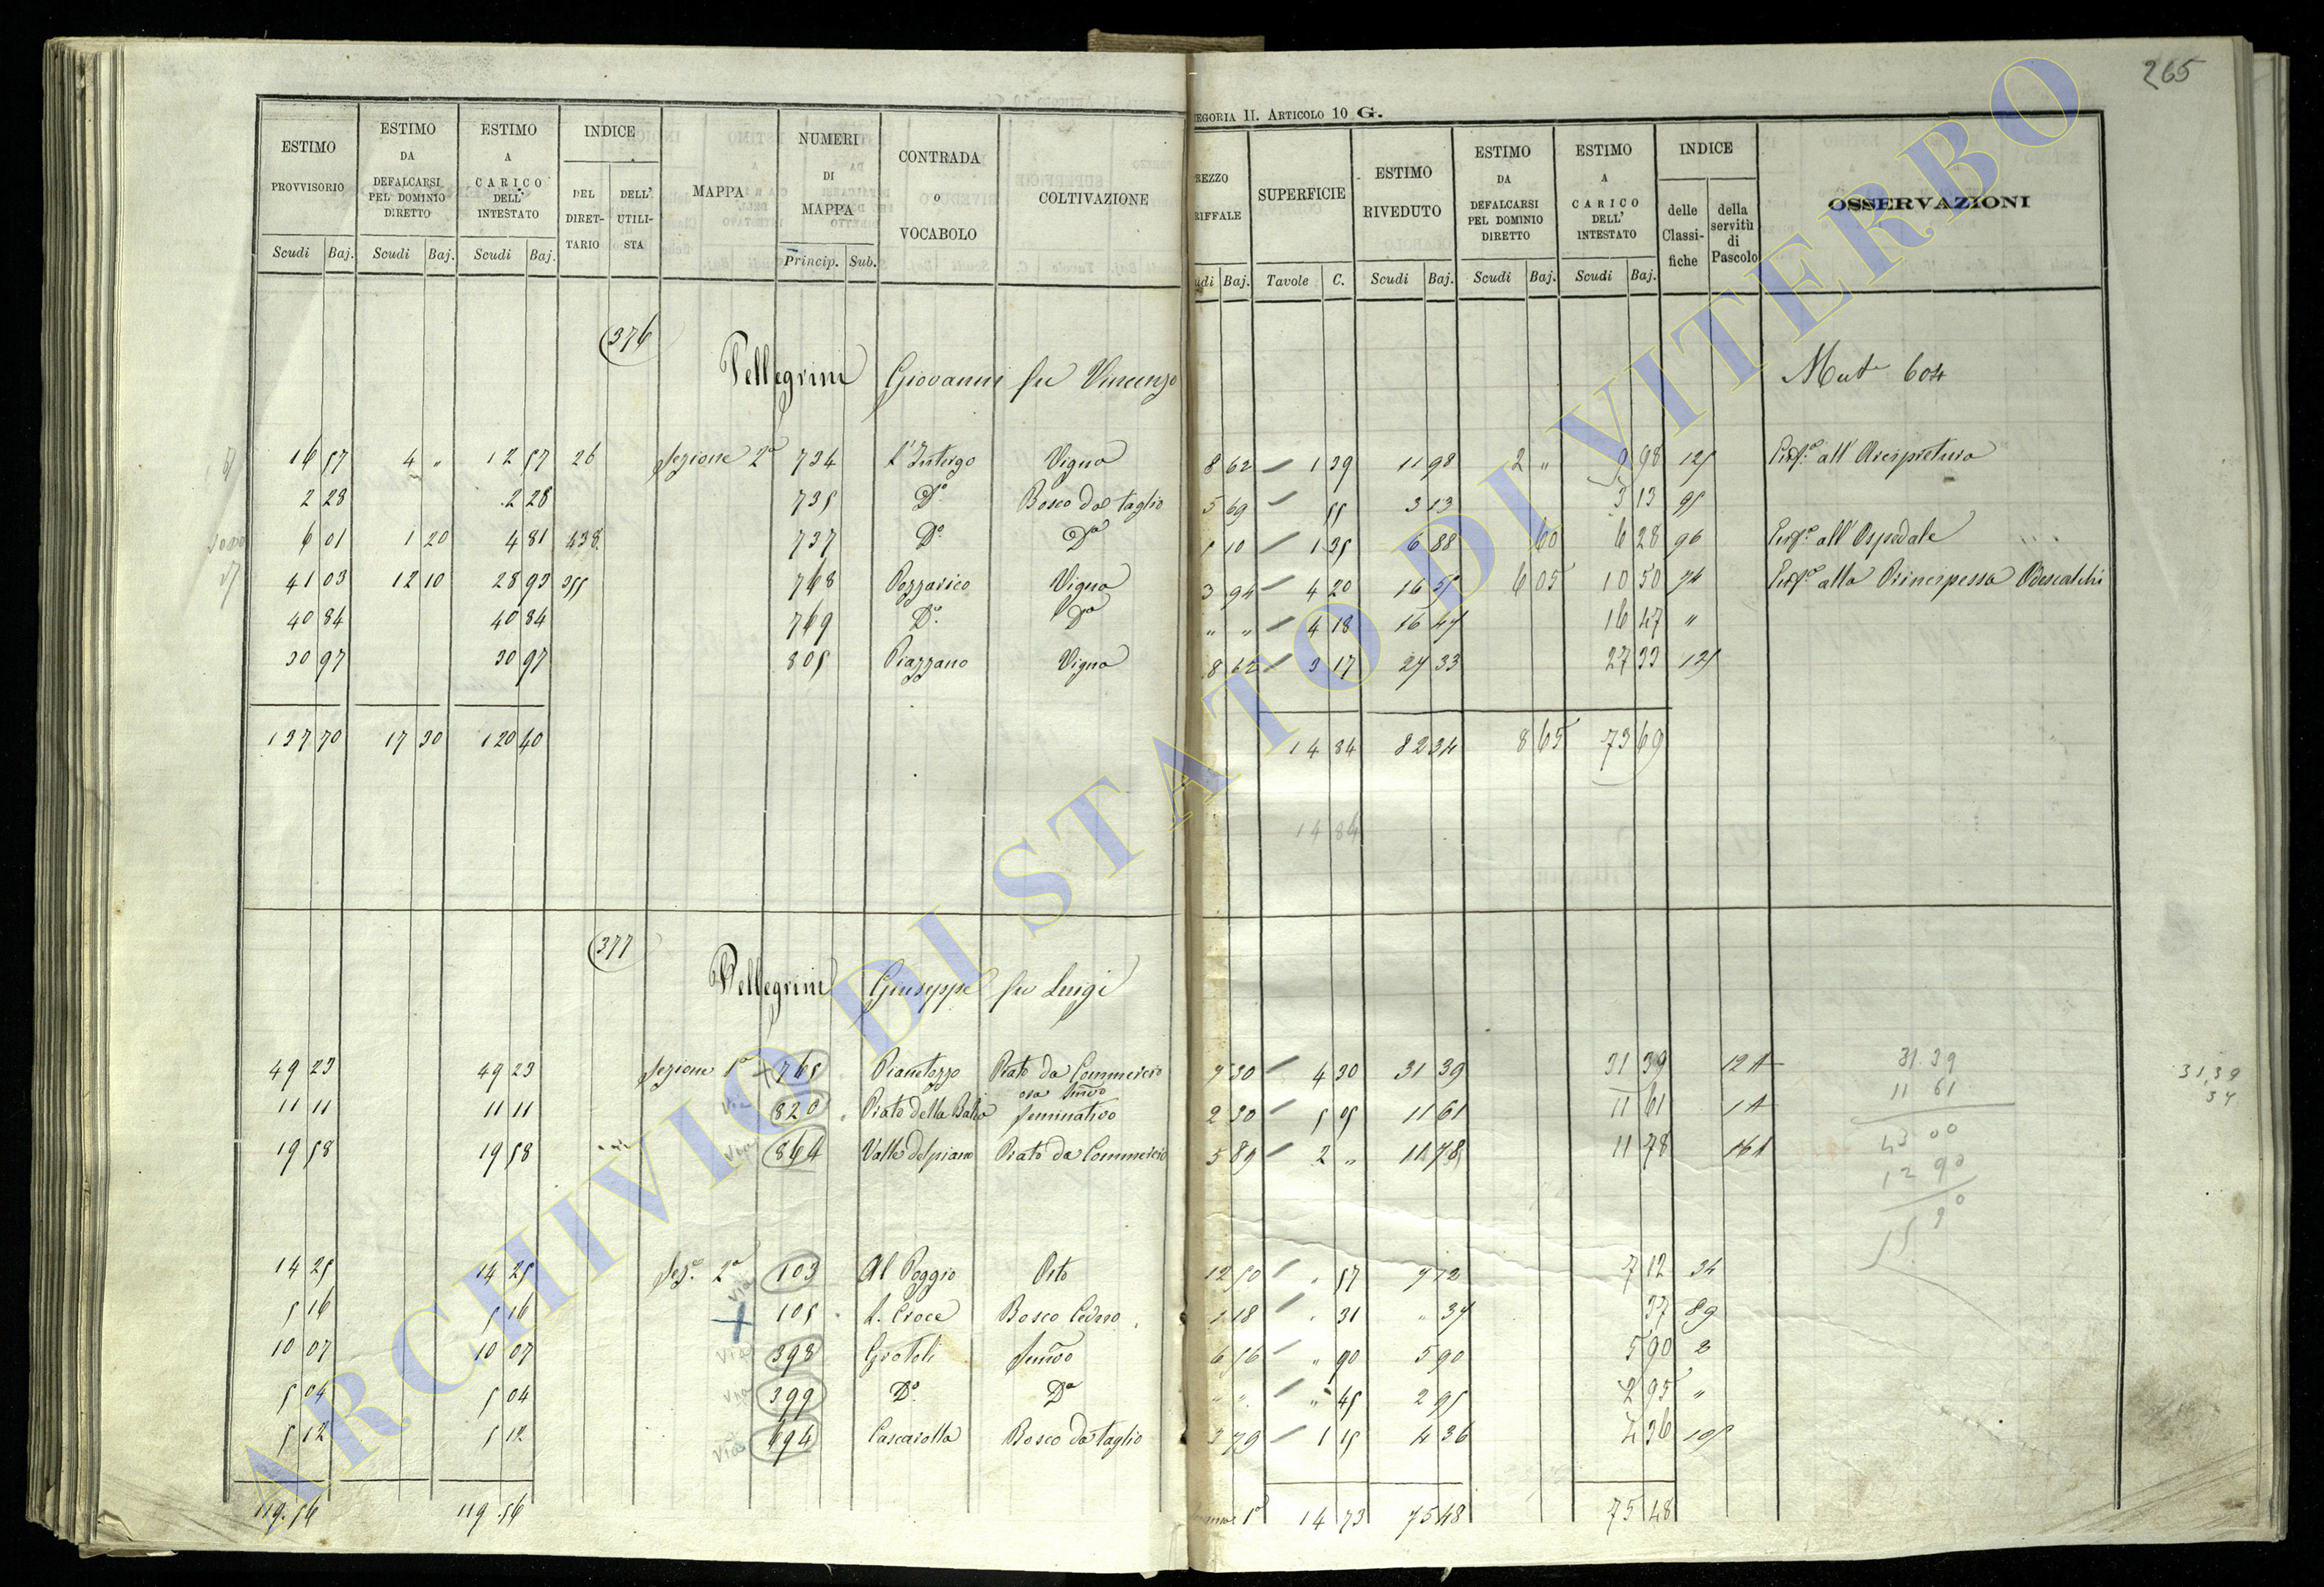 265
EGORIA II. ARTICOLO 10 G.
ESTIMO PROVVISORIO
ESTIMO DA DEFALCARSI PEL DOMINIO DIRETTO
ESTIMO A CARICO DELL' INTESTATO
INDICE
DEL DIRET-TARIO
DELL' UTILI-STA
MAPPA
NUMERI DI MAPPA
CONTRADA o VOCABOLO
COLTIVAZIONE
Scudi Baj. Scudi Baj. Scudi Baj. Princip. Sub.
REZZO RIFFALE
SUPERFICIE
ESTIMO RIVEDUTO
ESTIMO DA DEFALCARSI PEL DOMINIO DIRETTO
ESTIMO A CARICO DELL' INTESTATO
INDICE
delle Classi-fiche
della servitù di Pascolo
OSSERVAZIONI
udi Baj. Tavole C. Scudi Baj. Scudi Baj. Scudi Baj.
376
Pellegrini Giovanni fu Vincenzo
Mut 604
16 57 4 " 12 57 26 Sezione 2a 734 L'Intergo Vigna 8 62 1 39 11 98 2 " 9 98 125 all' Arcipretura
2 28 2 28 735 Do Bosco da taglio 5 69 55 3 13 3 13 95
6 01 1 20 4 81 438 737 Do Da 5 10 1 35 6 88 60 6 28 96 all' Ospedale
41 03 12 10 28 93 355 768 Pozzarico Vigna 3 94 4 20 16 55 6 05 10 50 74 alla Principessa Odescalchi
40 84 40 84 769 Do Da " " 4 18 16 47 16 47 "
30 97 30 97 805 Piazzano Vigna 8 62 3 17 27 33 27 33 125
137 70 17 30 120 40 14 84 82 34 8 65 73 69
14 84
377
Pellegrini Giuseppe fu Luigi
49 23 49 23 Sezione 1a 765 Piantozzo Prato da Commercio 7 30 4 30 31 39 31 39 12 A
ora
11 11 11 11 Via 820 Prato della Seminativo 2 30 5 05 11 61 11 61 1 A
19 58 19 58 Via 864 Valle del piano Prato da Commercio 5 89 2 " 11 78 11 78 16 A
31.39
11 61
43 00
12 90
31,39
34
14 25 14 25 Sez.e 2a Via 103 Al Poggio Orto 12 50 " 57 7 12 7 12 34
5 16 5 16 105 S. Croce Bosco Ceduo 1 18 " 31 " 37 37 89
10 07 10 07 Via 398 Grotoli Semvo 6 56 " 90 5 90 5 90 2
5 04 5 04 Via 399 Do Da " " " 45 2 95 2 95 "
5 12 5 12 Via 494 Cascarolla Bosco da taglio 3 79 1 15 4 36 4 36 105
119.56 119.56 14 73 75 48 75 48
ARCHIVIO DI STATO DI VITERBO